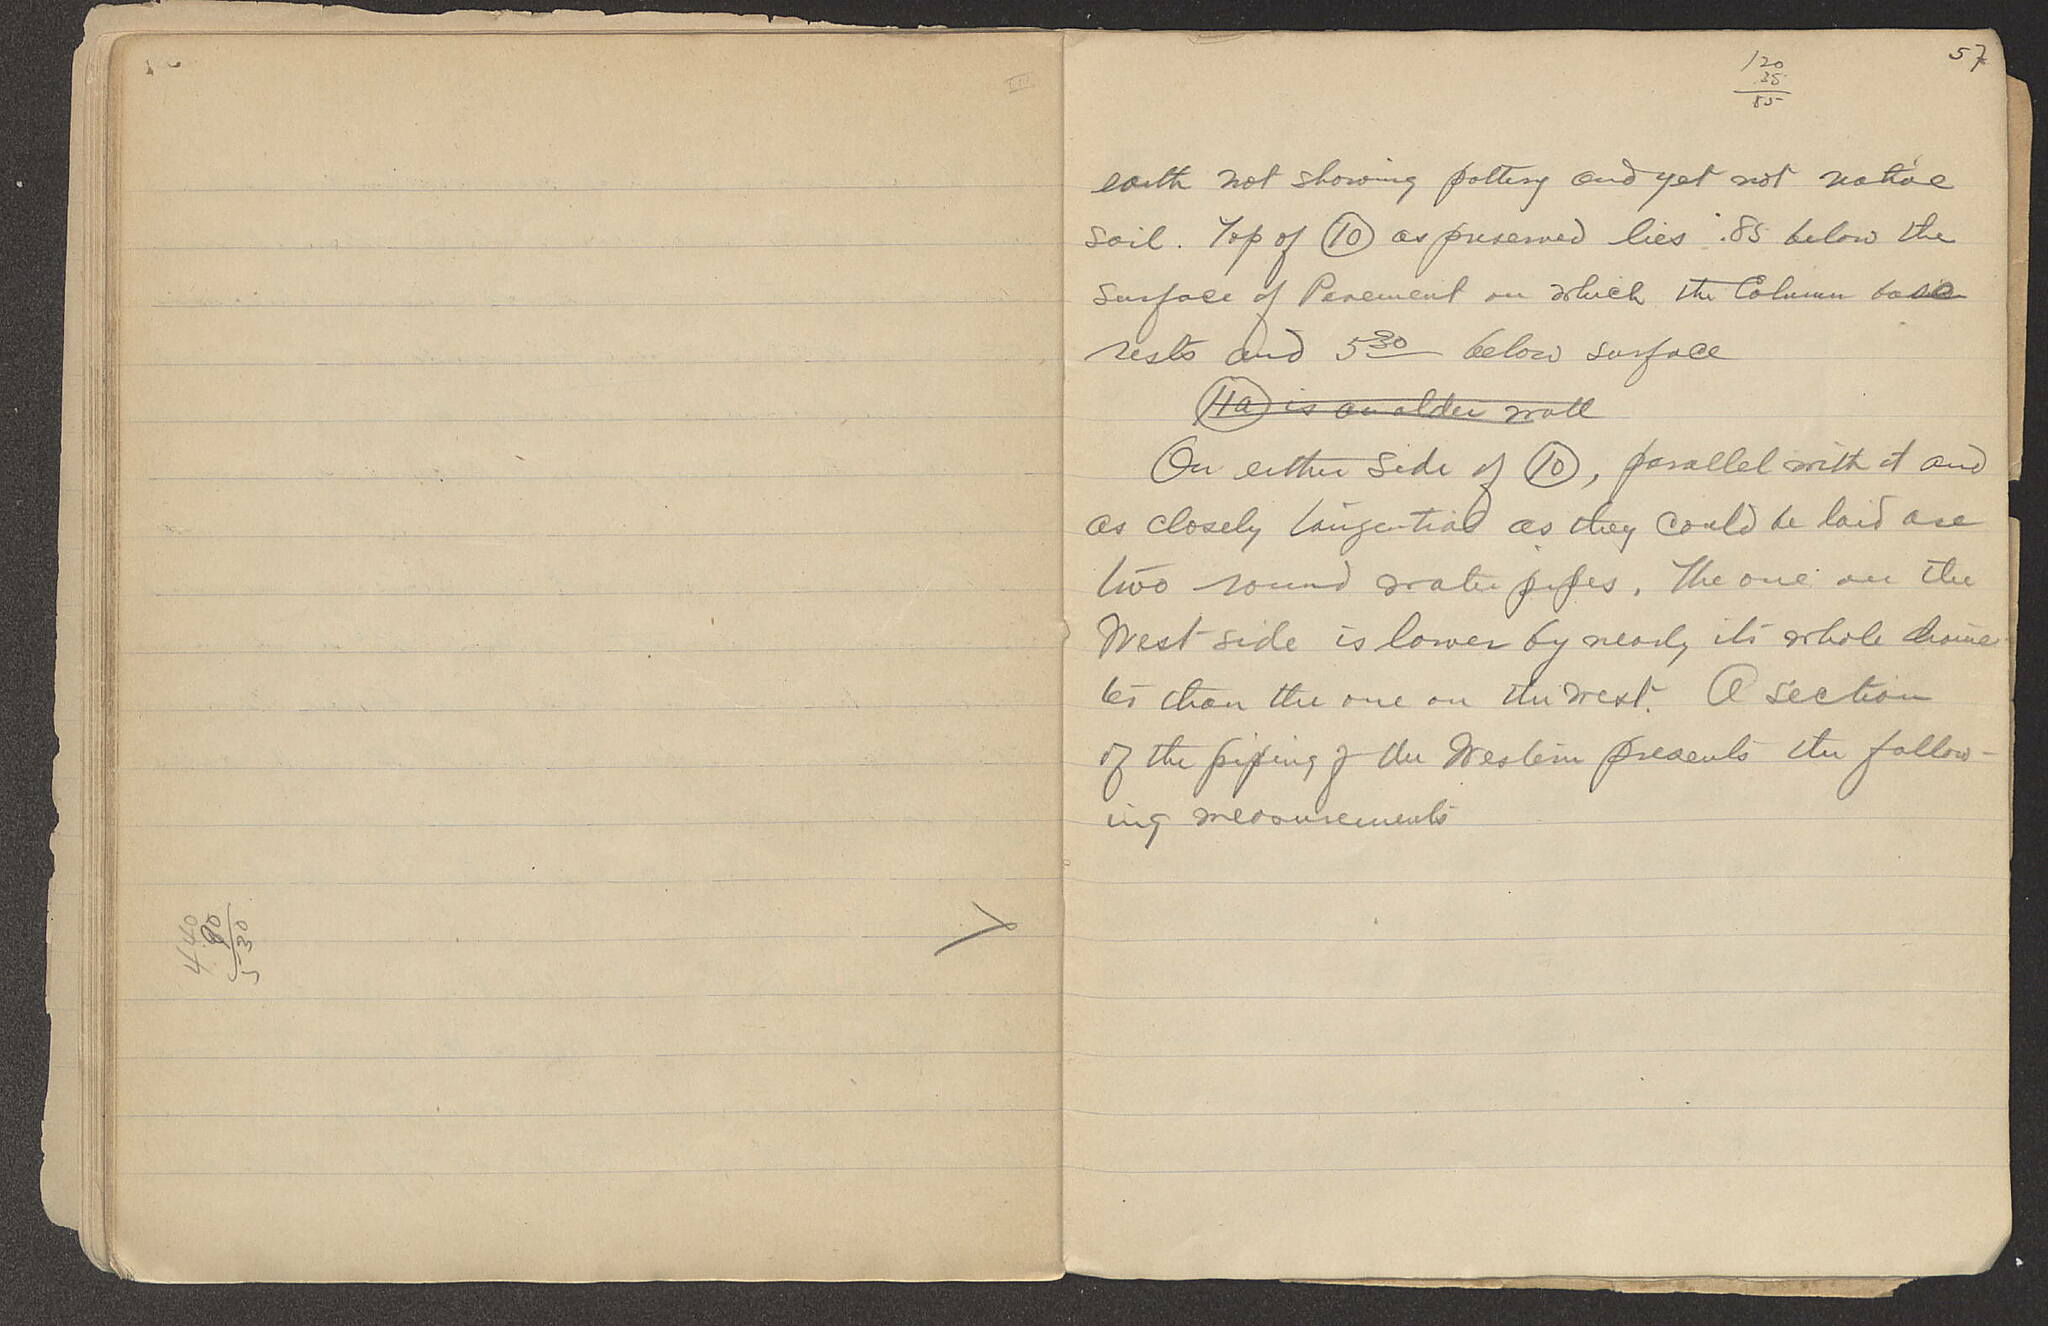 440
90
530
57
120
35
85
earth not showing pottery and yet not native
soil. Top of 10 as preserved lies .85 below the
surface of Pavement on which the Column base
rests and 5 30 below surface
11a is an older wall
On either side of 10, parallel with it and
as closely tangential as they could be laid are
two round water pipes. The one on the
West side is lower by nearly its whole diame-
ter than the one on the west. A section
of the piping of the Western presents the follow-
ing measurements